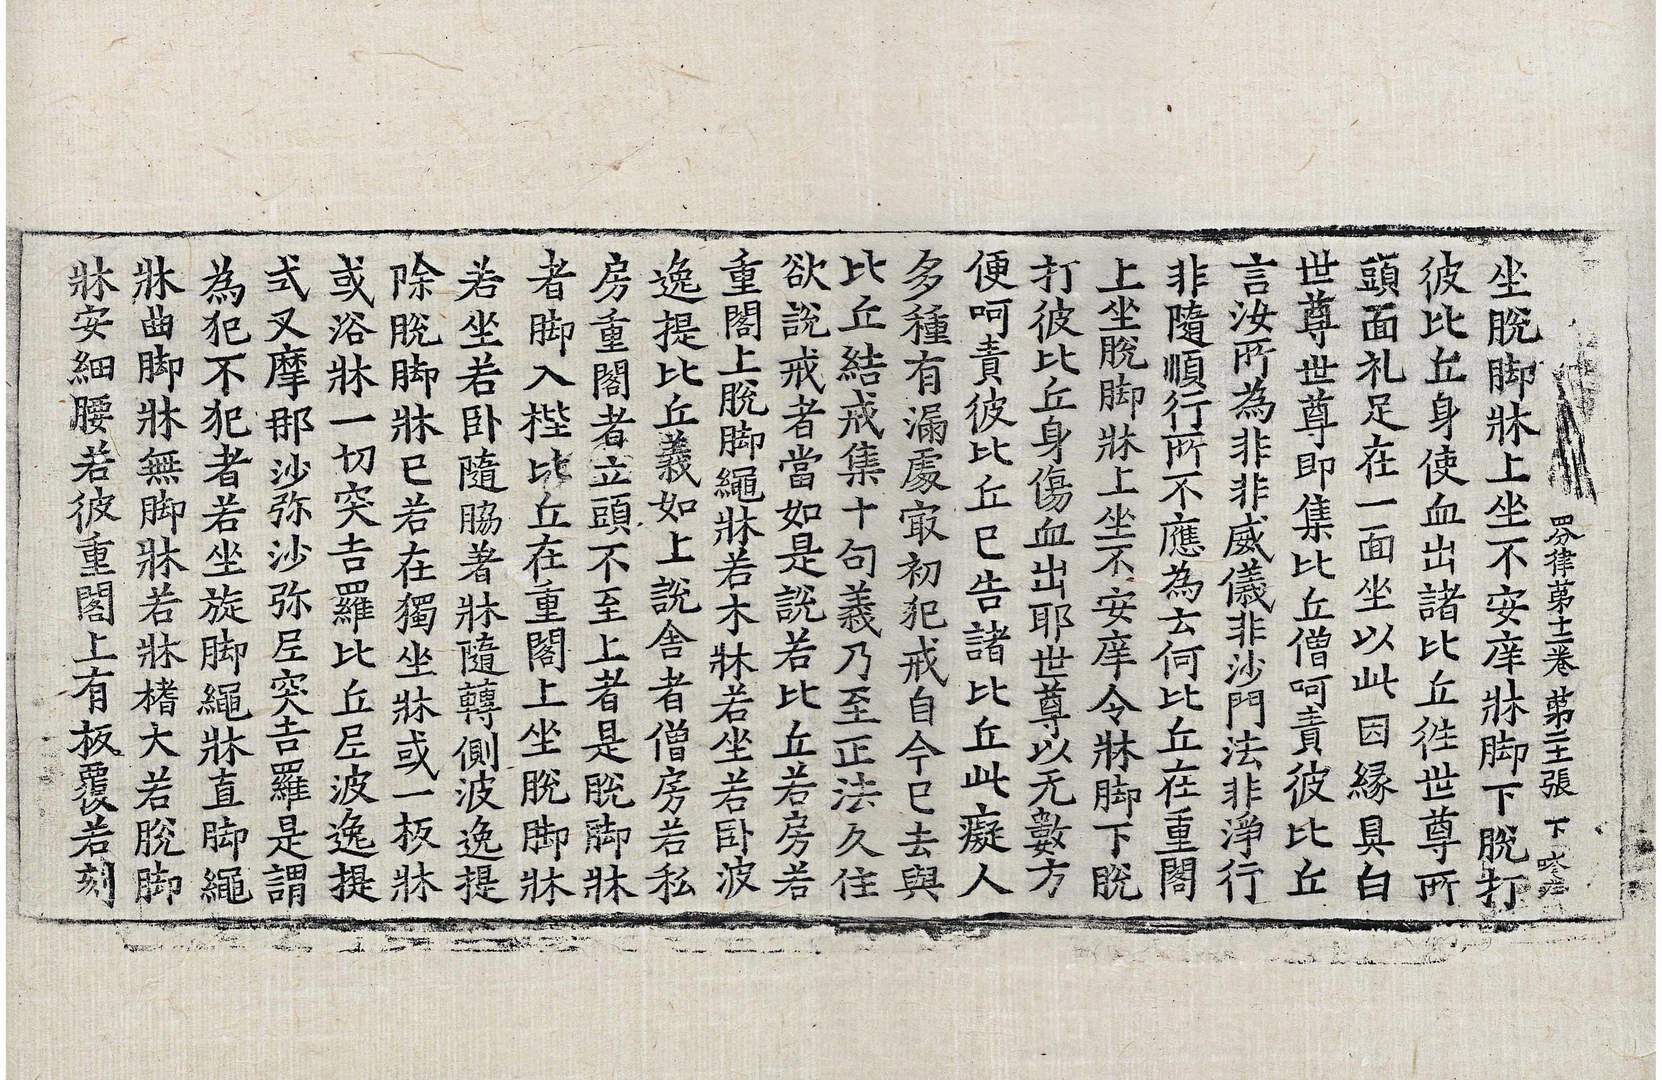 四分律第十二卷 第二十張 下
坐脫脚牀上坐不安庠牀脚下脫打
彼比丘身使血出諸比丘徃世尊所
頭面礼足在一面坐以此因緣具白
世尊世尊即集比丘僧呵責彼比丘
言汝所為非非威儀非沙門法非淨行
非隨順行所不應為云何比丘在重閣
上坐脫脚牀上坐不安庠令牀脚下脫
打彼比丘身傷血出耶世尊以无數方
便呵責彼比丘已告諸比丘此癡人
多種有漏處㝡初犯戒自今已去與
比丘結戒集十句義乃至正法久住
欲說戒者當如是說若比丘若房若
重閣上脫脚繩牀若木牀若坐若卧波
逸提比丘義如上說舍者僧房若私
房重閣者立頭不至上者是脫脚牀
者脚入梐比丘在重閣上坐脫脚牀
若坐若卧隨脇著牀隨轉側波逸提
除脫脚牀已若在獨坐牀或一板牀
或浴牀一切突吉羅比丘尼波逸提
式叉摩那沙弥沙弥尼突吉羅是謂
為犯不犯者若坐旋脚繩牀直脚繩
牀曲脚牀無脚牀若牀榰大若脫脚
牀安細腰若彼重閣上有板覆若刻